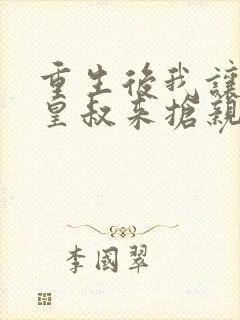 重生後我讓
皇叔來搶親
李國翠